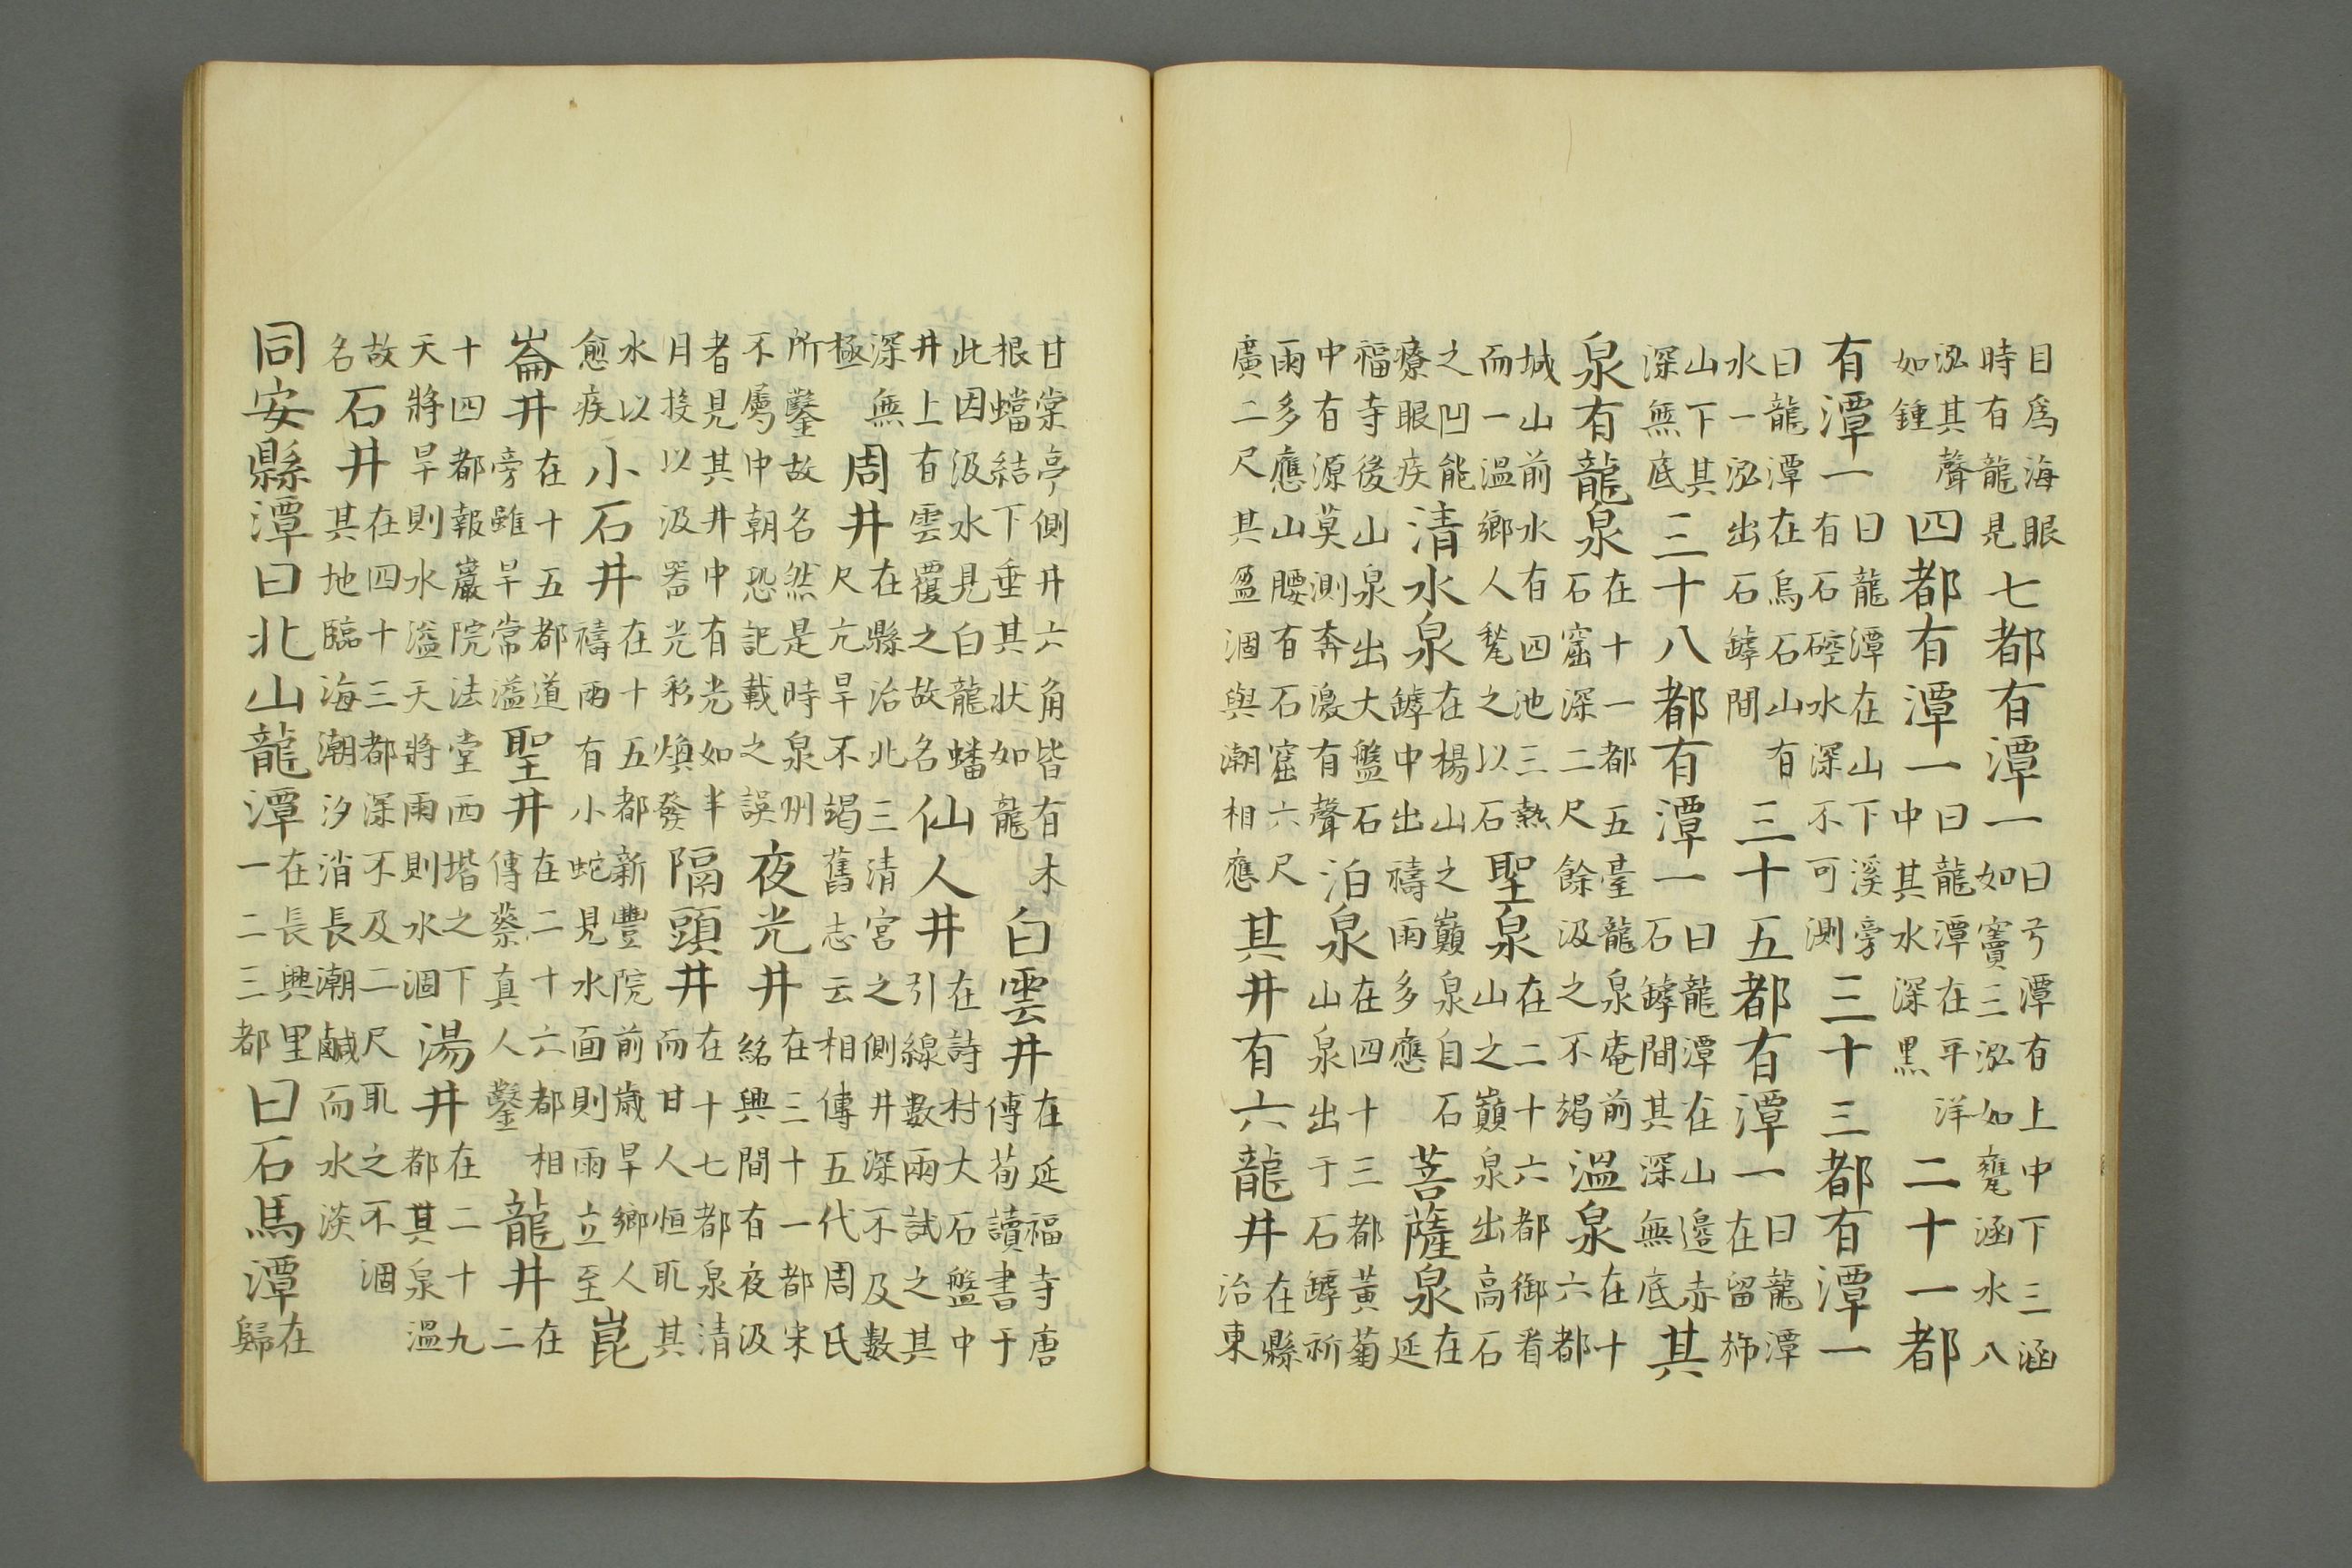 目爲海眼時有龍見七都有潭一曰弓潭有上中下三涵如竇三泓如甕涵水八
泓其聲如鍾四都有潭一曰龍潭在平洋中其水深黑二十一都
有潭一曰龍潭在山下溪旁有石硿水深不可測三十三都有潭一
曰龍潭在烏石山有水一泓出石罅間三十五都有潭一曰龍潭在留柿
山下其深無底三十八都有潭一曰龍潭在山邉赤石罅間其深無底其
泉有龍泉在十一都五臺龍泉庵前石窟深二尺餘汲之不竭溫泉在十六都
城山前水有四池三熱而一溫鄉人甃之以石聖泉在二十六都御㸔山之巔泉出高石
之凹能療眼疾清水泉在楊山之巔泉自石罅中出禱雨多應菩薩泉在延
福寺後山泉出大盤石中有源莫測奔瀑有聲泊泉在四十三都黃菊山泉出于石罅祈
雨多應山腰有石窟六尺廣二尺其盈涸與潮相應其井有六龍井在縣治東
甘棠亭側井六角皆有木根蟠結下垂其狀如龍白雲井在延福寺唐傳荀讀書于
此因汲水見白龍蟠井上有雲覆之故名仙人井在詩村大石盤中引線數兩試之其
深無極周井在縣治北三清宮之側井深不及數尺亢旱不竭舊志云相傳五代周氏
所鑿故名然是時泉州不屬中朝恐記載之誤夜光井在三十一都宋紹興間有夜汲
者見其井中有光如半月投以汲器光彩煥發隔頭井在十七都泉清而甘人恒取其
水以愈疾小石井在十五都新豐院前歲旱鄉人禱雨有小蛇見水面則雨立至崑
崙井在十五都道旁雖旱常溢聖井在二十六都相傳蔡真人鑿龍井在二
十四都報巖院法堂西堦之下天將旱則水溢天將雨則水涸湯井在二十九都其泉溫
故名石井在四十三都深不及二尺取之不涸其地臨海潮汐消長潮鹹而水淡
同安縣潭曰北山龍潭在長興里一二三都曰石馬潭在歸